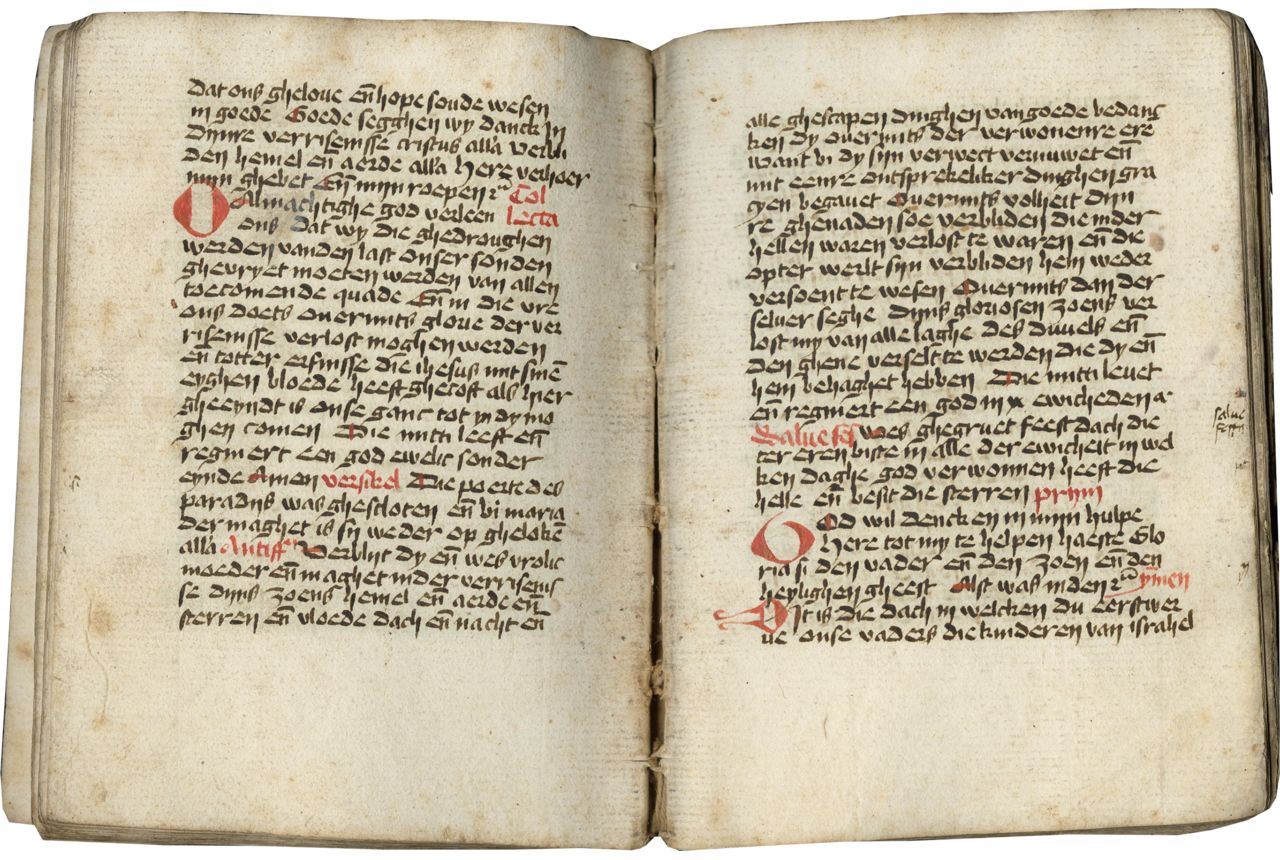 dat ons gheloue eñ hope soude wesen
in goede Goede segghen wy danck In
Dijnre verrisenisse cristus alla Verbli
den hemel eñ aerde alla Here verhoer
mijn ghebet Eñ mijn roepen Col
O Almachtighe god verleen lecta
ons dat wy die ghedroughen
werden vanden last onser sonden
ghevryet moeten werden van allen
toecomende quade Eñ in die vre
ons doets ouermits glorie der ver
risenisse verlost moghen werden
eñ totter erfnisse die ihesus mit sinē
eyghen bloede heeft ghecoft als hier
gheeyndt is onse ganc tot in dy mo
ghen comen Die mitti leeft eñ
regniert een god ewelic sonder
eynde Amen versikel Die poerte des
paradijs was ghesloten eñ bi maria
der maghet is si weder op ghelokē
alla Antiff Verblijt dy eñ wes vrolic
moeder eñ maghet inder verrisenis
se dijns zoens hemel eñ aerde eñ
sterren eñ vloede dach eñ nacht eñ
alle ghescapen dinghen van goede bedanc
ken dy ouermits der verwonenre ere
want bi dy sijn verwect vernuwet eñ
mit eenre ontsprekeliker dinghen gra
cyen begauet Ouermits volheit dijn
re ghenaden soe verbliden die inder
hellen waren verlost te waren eñ die
opter werlt sijn verbliden hem weder
versoent te wesen Ouermits dan der
seluer seghe dijns gloriosen zoens ver
lost my van alle laghe des duuels eñ
den ghene verselt te werden die dy eñ
hem behaghet hebben Die mitti leuet
eñ regniert een god in x ewicheden a
Salue fes wes ghegruet feest dach die
ter eren biste in alle der ewicheit in wel
ken daghe god verwonnen heeft die
helle eñ besit die sterren prijm
God wil dencken in mijn hulpe
Here tot my te helpen haeste Glo
ria si den vader eñ den zoen eñ den
heylighen gheest Alst was inden ymen
Dit is die dach in welcken du eerstwer
ue onse vaders die kinderen van israhel
salue